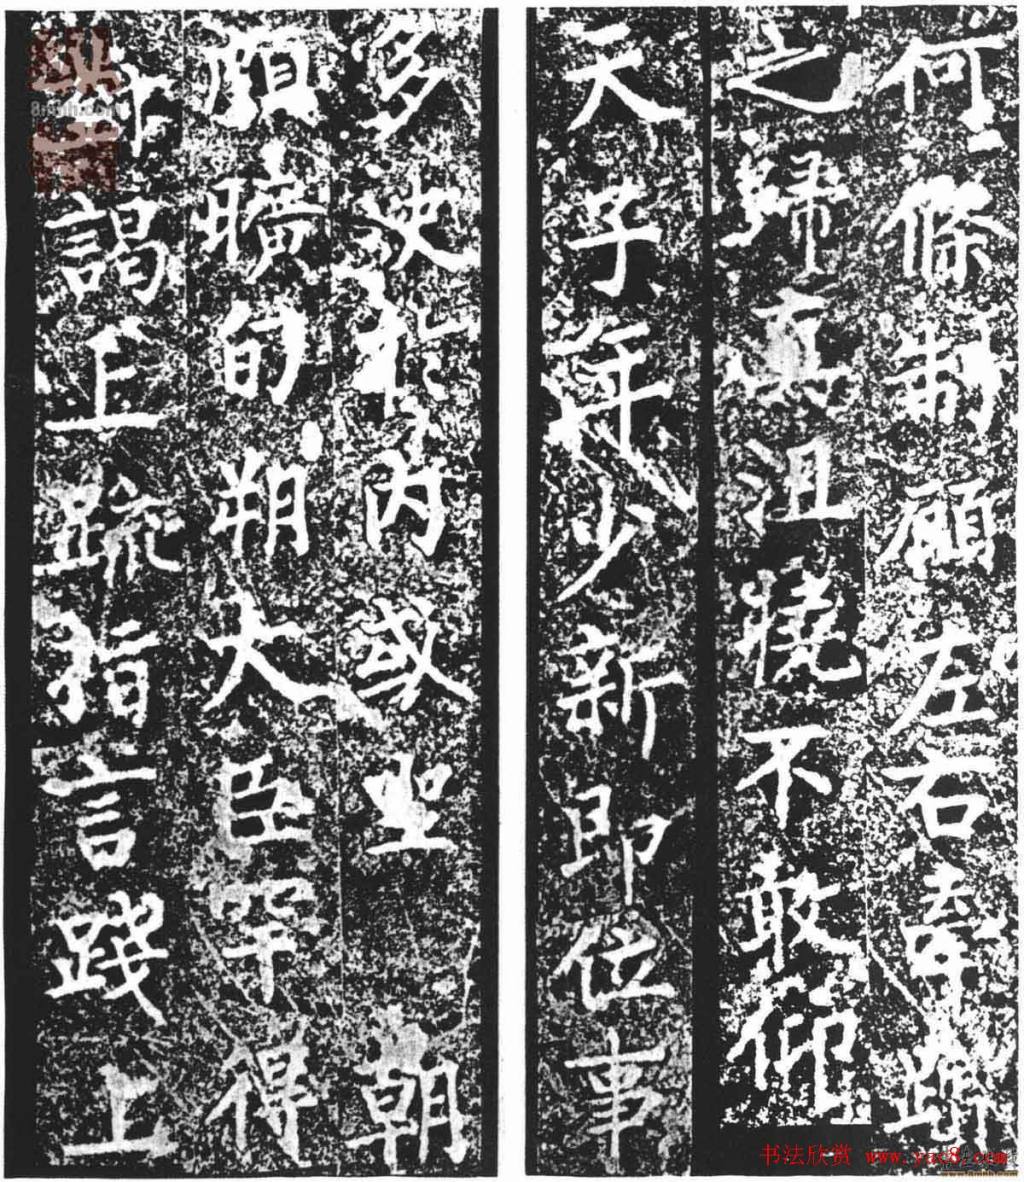 何條制顧左右牽跡
之歸真沮撓不敢仰
天子年少新即位事
多決於內或坐朝
頗曠旬朔大臣罕得
對謁上疏指言踐上
书法欣赏 www.yac8.com